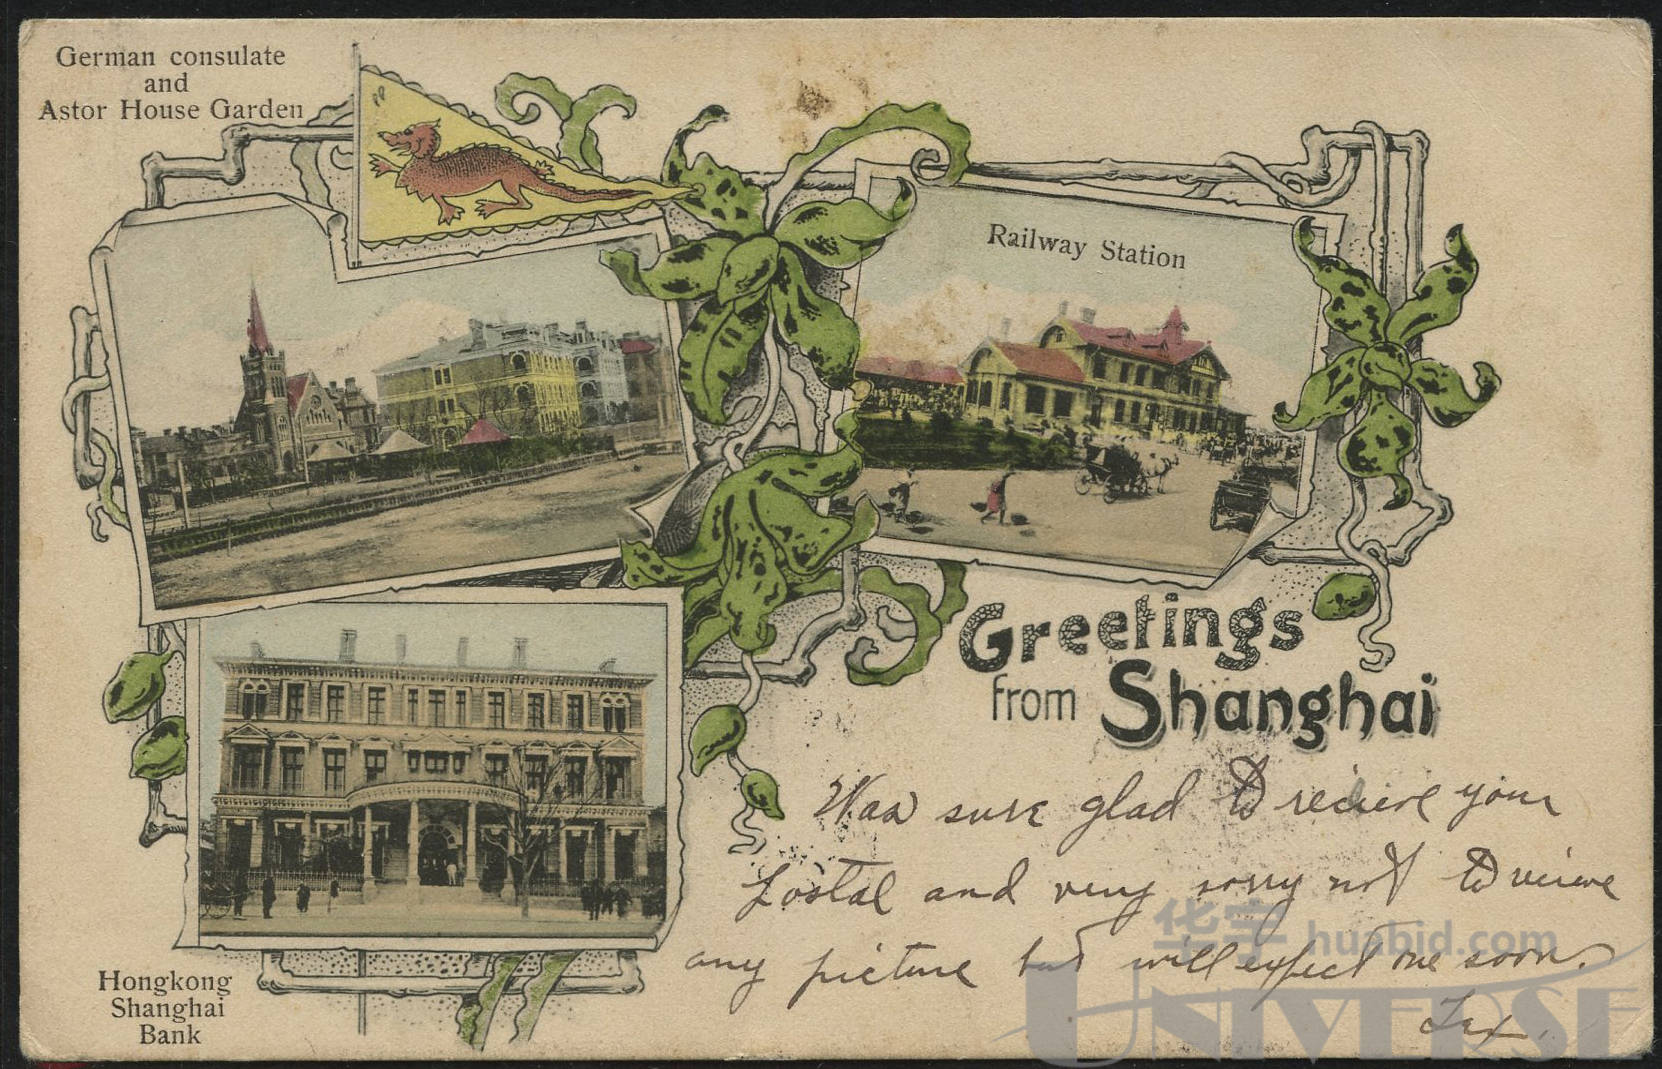 German consulate
and
Astor House Garden
Railway Station
Greetings
from Shanghai
Was sure glad to recieve your
Postal and very sorry not to recieve
any picture but will expect one soon.
Tex.
Hongkong
Shanghai
Bank
华宇 huabid.com
UNIVERSE